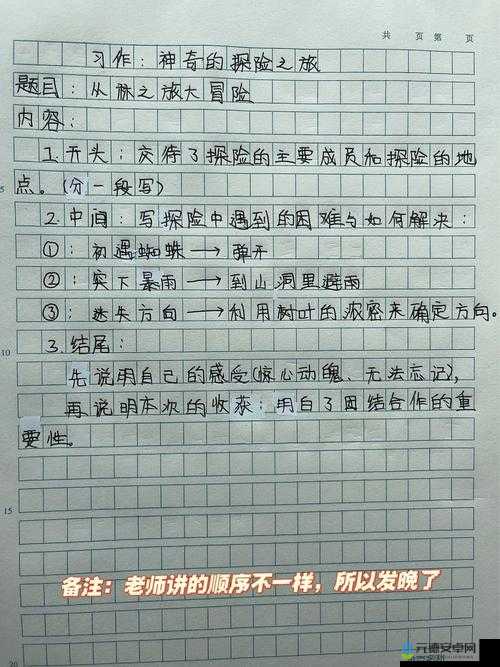 共 页 第 页
习作：神奇的探险之旅
题目：从林之旅大冒险
内容：
1.开头：交待了探险的主要成员和探险的地
5
点。（分一段写）
2.中间：写探险中遇到的困难与如何解决：
①：初遇蜘蛛→弹开
②：突下暴雨→到山洞里避雨
③：迷失方向→利用树叶的浓密来确定方向。
10
3.结尾：
先说明自己的感受(惊心动魄、无法忘记),
再说明本次的收获：明白了团结合作的重
要性。
15
备注：老师讲的顺序不一样，所以发晚了
元德安卓网
20